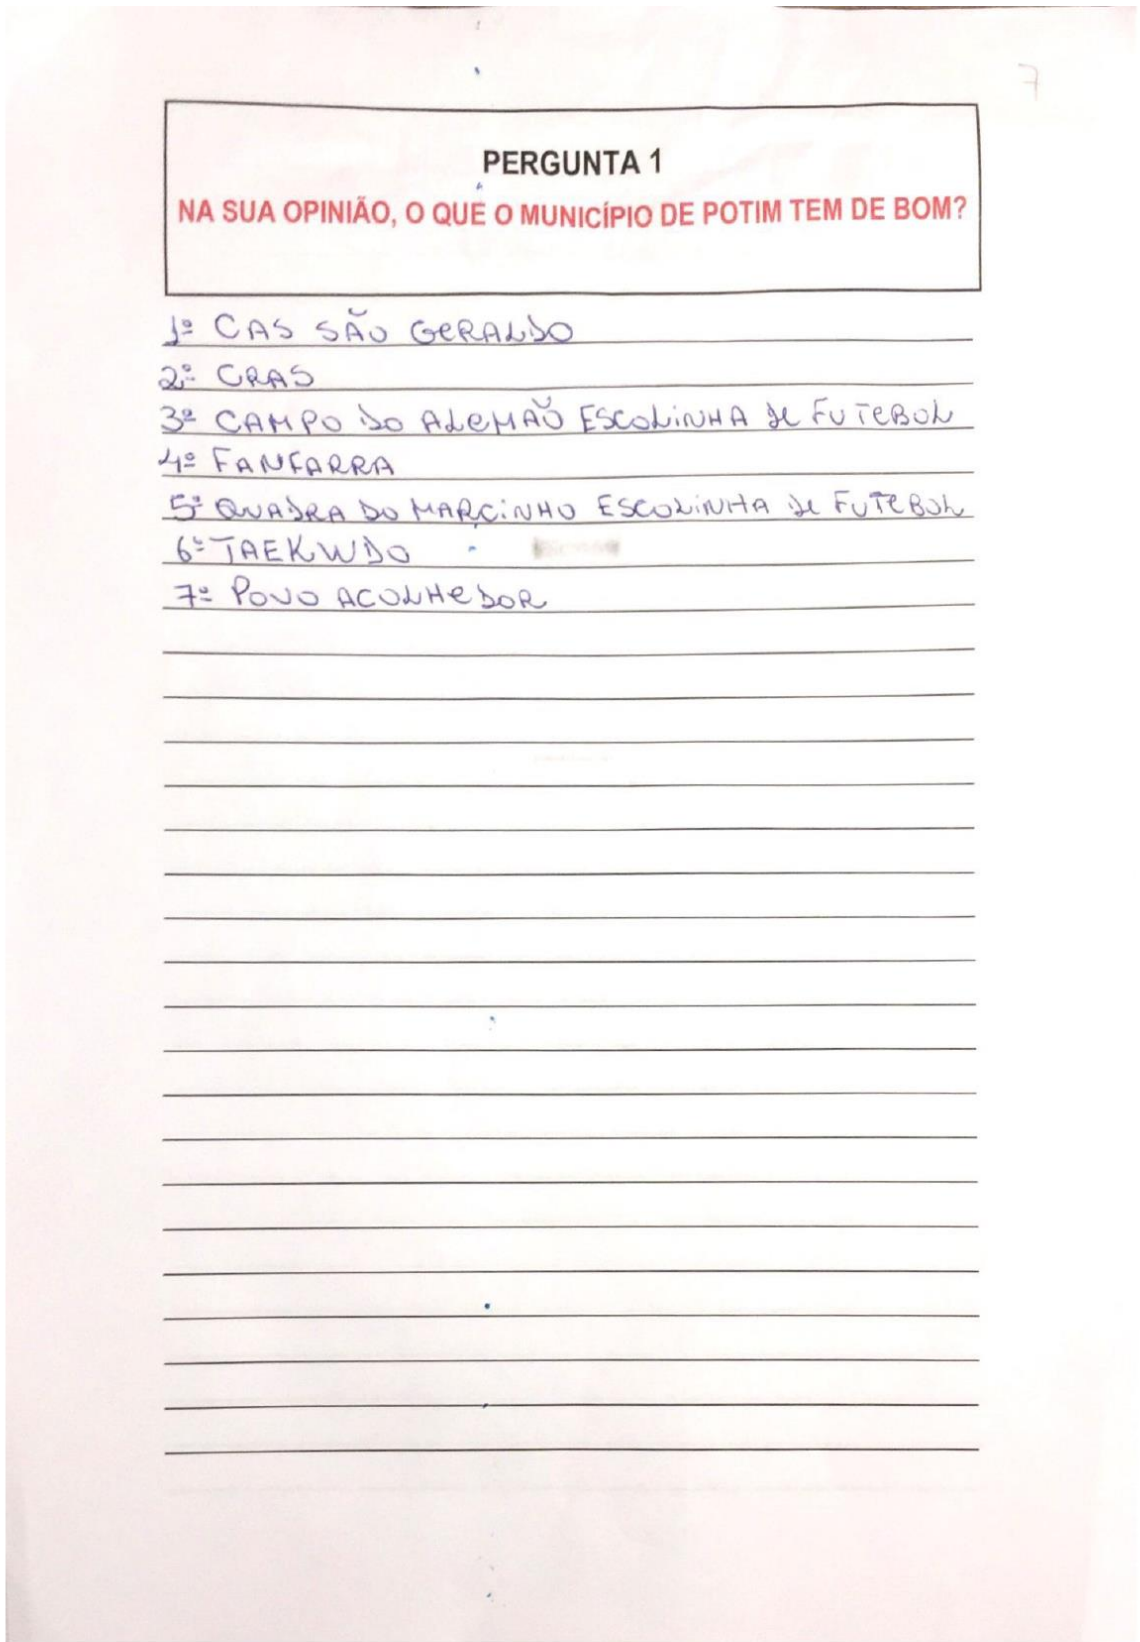 7
PERGUNTA 1
NA SUA OPINIÃO, O QUE O MUNICÍPIO DE POTIM TEM DE BOM?
1º CAS SÃO GERALDO
2º CRAS
3º CAMPO DO ALEMÃO ESCOLINHA DE FUTEBOL
4º FANFARRA
5º QUADRA DO MARCINHO ESCOLINHA DE FUTEBOL
6º TAEKWDO
7º POVO ACOLHEDOR